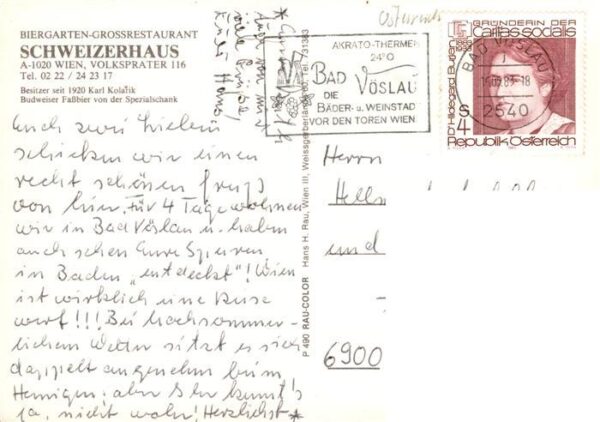 BIERGARTEN-GROSSRESTAURANT
SCHWEIZERHAUS
A-1020 WIEN, VOLKSPRATER 116
Tel. 02 22 / 24 23 17
Besitzer seit 1920 Karl Kolařik
Budweiser Faßbier von der Spezialschank
Euch zwei Lieben
schicken wir einen
recht schönen Gruß
von hier. Für 4 Tage wohnen
wir in Bad Vöslau u. haben
auch schon Eure Spuren
in Baden "entdeckt"! Wien
ist wirklich eine Reise
wert!!! Bei hochsommer-
lichem Wetter sitzt es sich
doppelt angenehm beim
Heurigen; aber Ihr kennt's
ja, nicht wahr! Herzlichst *
*
auch von mir
viele Grüße,
Österreich
AKRATO-THERMEN
24°
BAD VÖSLAU
DIE
BÄDER- u. WEINSTADT
VOR DEN TOREN WIEN
BAD VÖSLAU
2540
GRÜNDERIN DER
Caritas socialis
Dr. Hildegard Burjan
1883
1933
S 4
Republik Österreich
P 490 RAU-COLOR Hans H. Rau, Wien III, Weissgerberlände
Herrn
und
6900